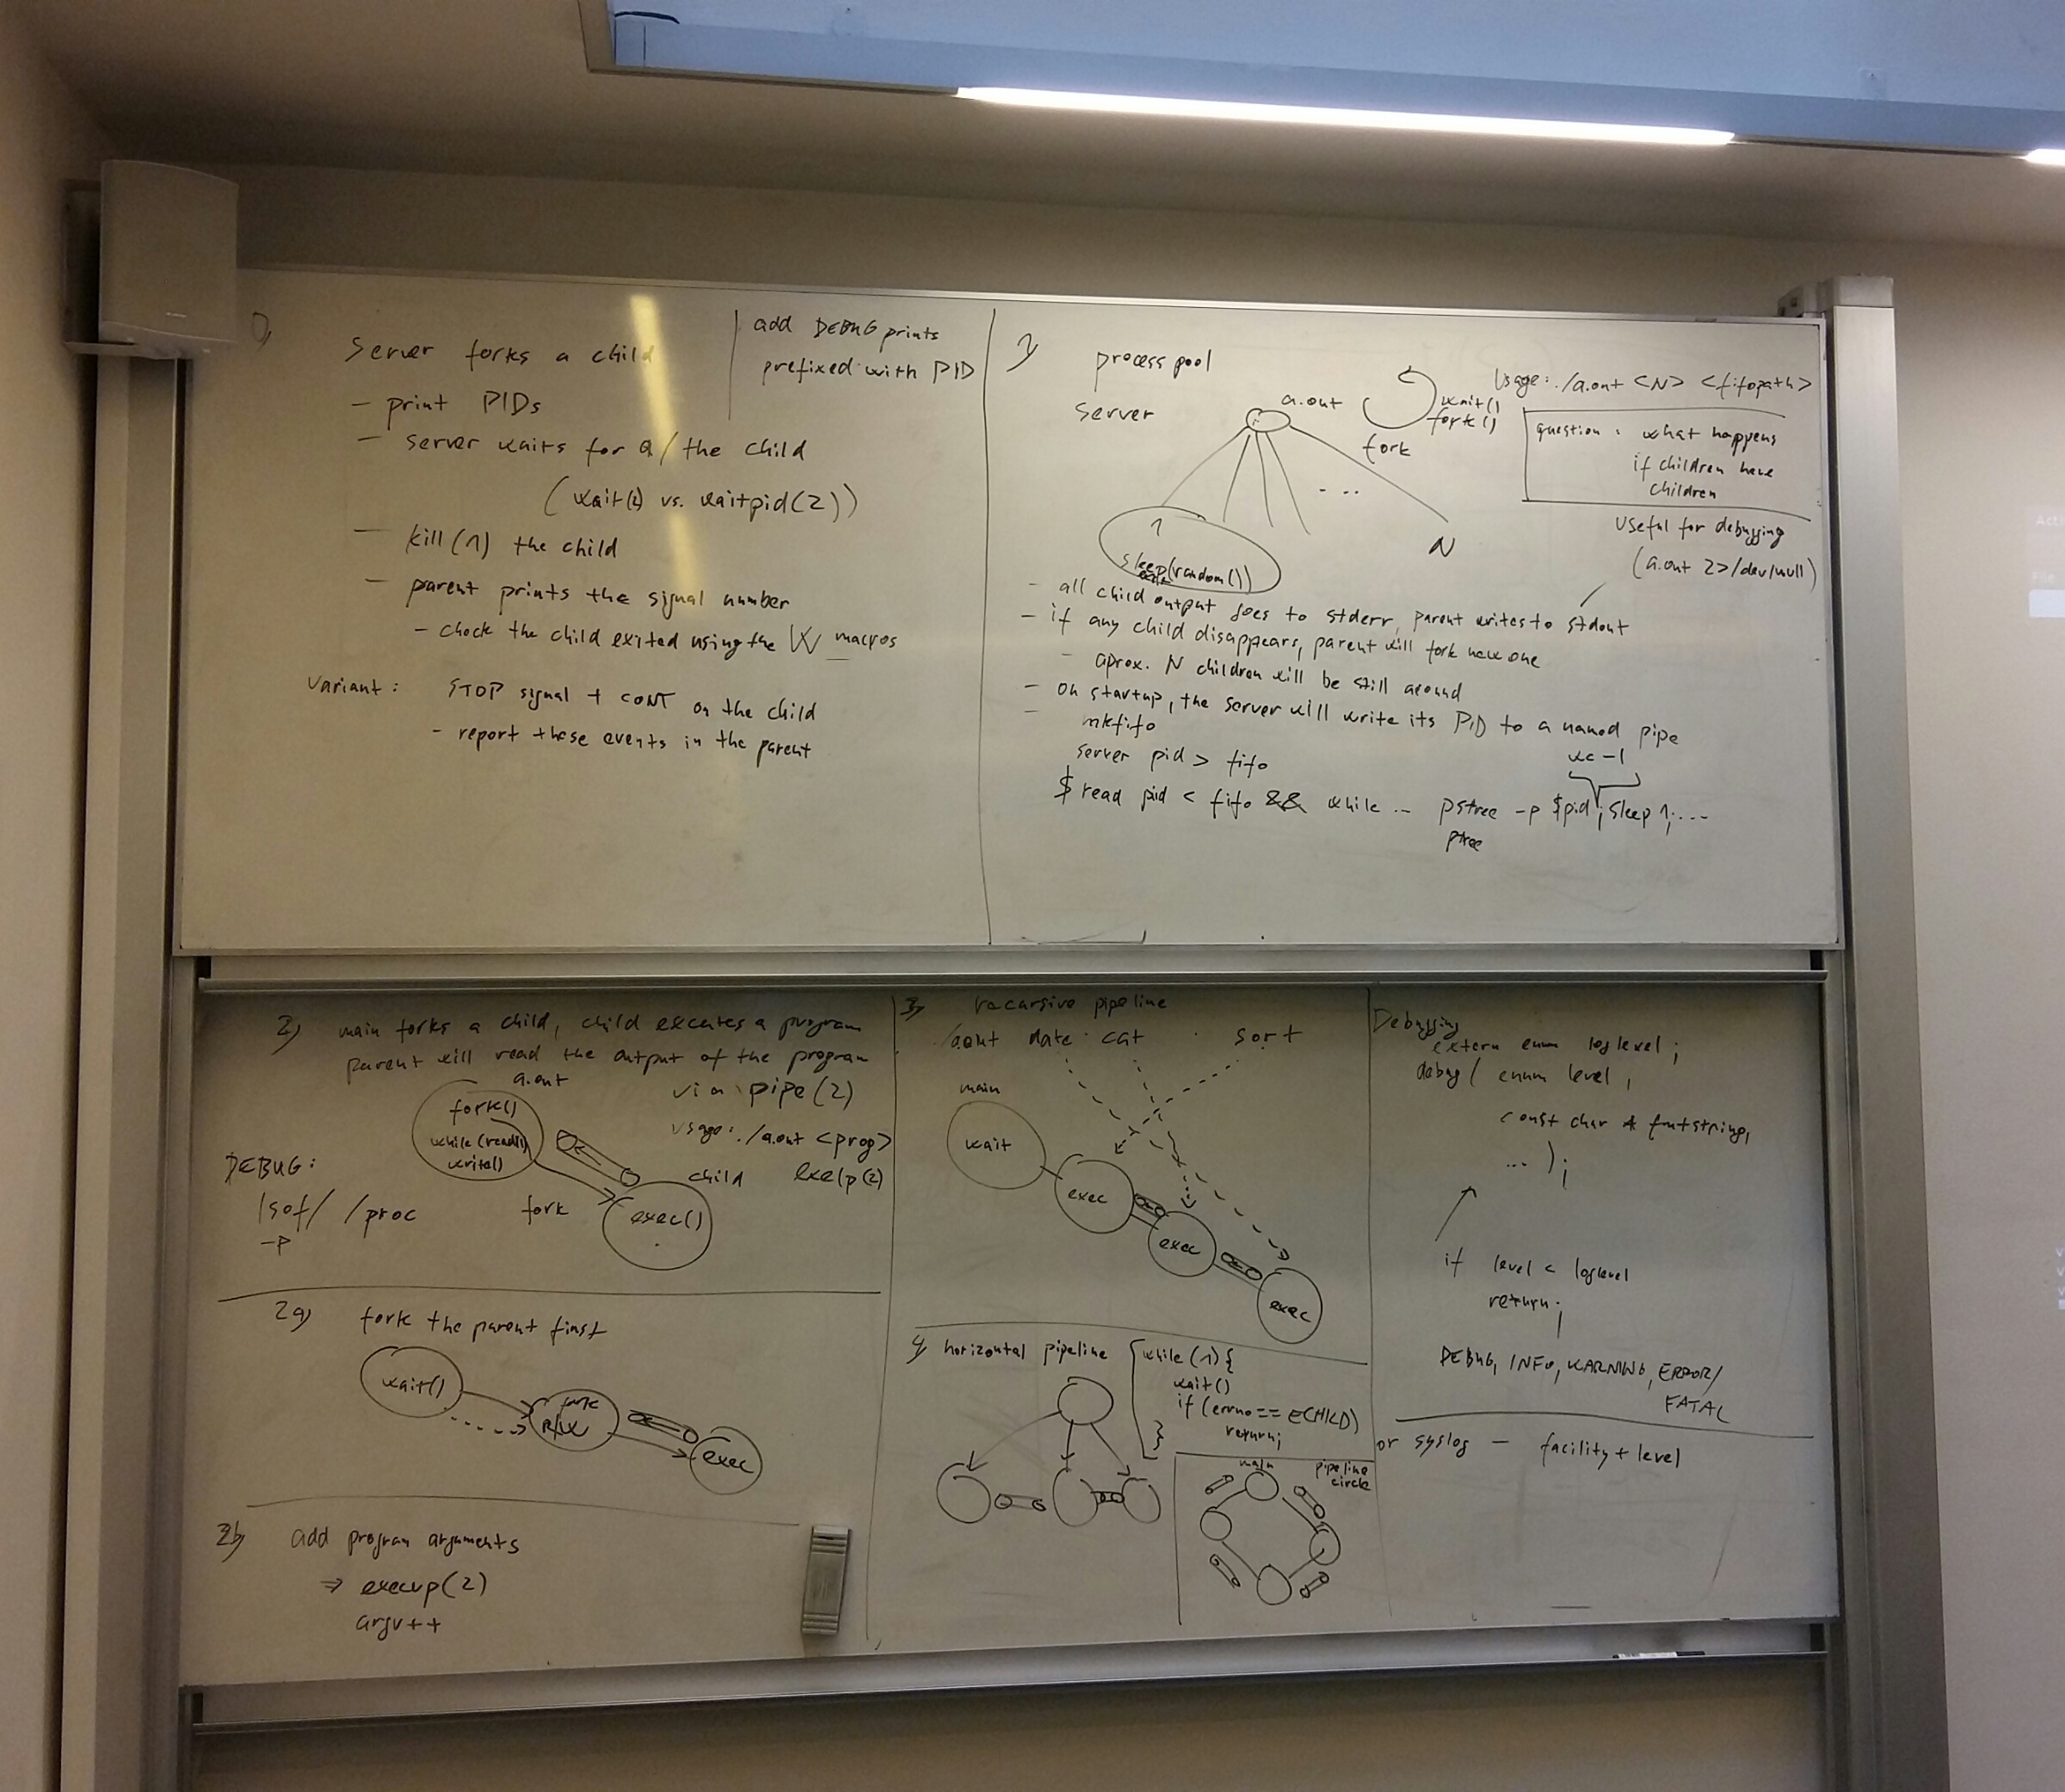 0)
Server forks a child
- print PIDs
- server waits for a/the child
(wait(2) vs. waitpid(2))
- kill(1) the child
- parent prints the signal number
- check the child exited using the W_ macros
Variant: STOP signal + CONT on the child
- report these events in the parent
add DEBUG prints
prefixed with PID
1)
process pool
server
a.out
wait()
fork()
fork
Usage: ./a.out <N> <fifopath>
question: what happens
if children have
children
useful for debugging
(a.out 2>/dev/null)
...
1
N
sleep(random())
- all child output goes to stderr, parent writes to stdout
- if any child disappears, parent will fork new one
- aprox. N children will be still around
- on startup, the server will write its PID to a named pipe
- mkfifo
server pid > fifo
wc -l
$ read pid < fifo && while ... pstree -p $pid; sleep 1; ...
ptree
2) main forks a child, child executes a program
parent will read the output of the program
via pipe(2)
a.out
fork()
while(read())
write()
usage: ./a.out <prog>
child execlp(2)
DEBUG:
lsof/ /proc
-p
fork
exec()
2a) fork the parent first
wait()
fork
R/W
exec
2b) add program arguments
=> execvp(2)
argv++
3) recursive pipeline
./a.out date cat . sort
main
wait
exec
exec
exec
4) horizontal pipeline
while(1){
wait()
if (errno == ECHILD)
return;
}
main
pipeline
circle
Debugging
extern enum loglevel;
debug( enum level,
const char * fmtstring,
... );
if level < loglevel
return;
DEBUG, INFO, WARNING, ERROR/
FATAL
or syslog - facility + level